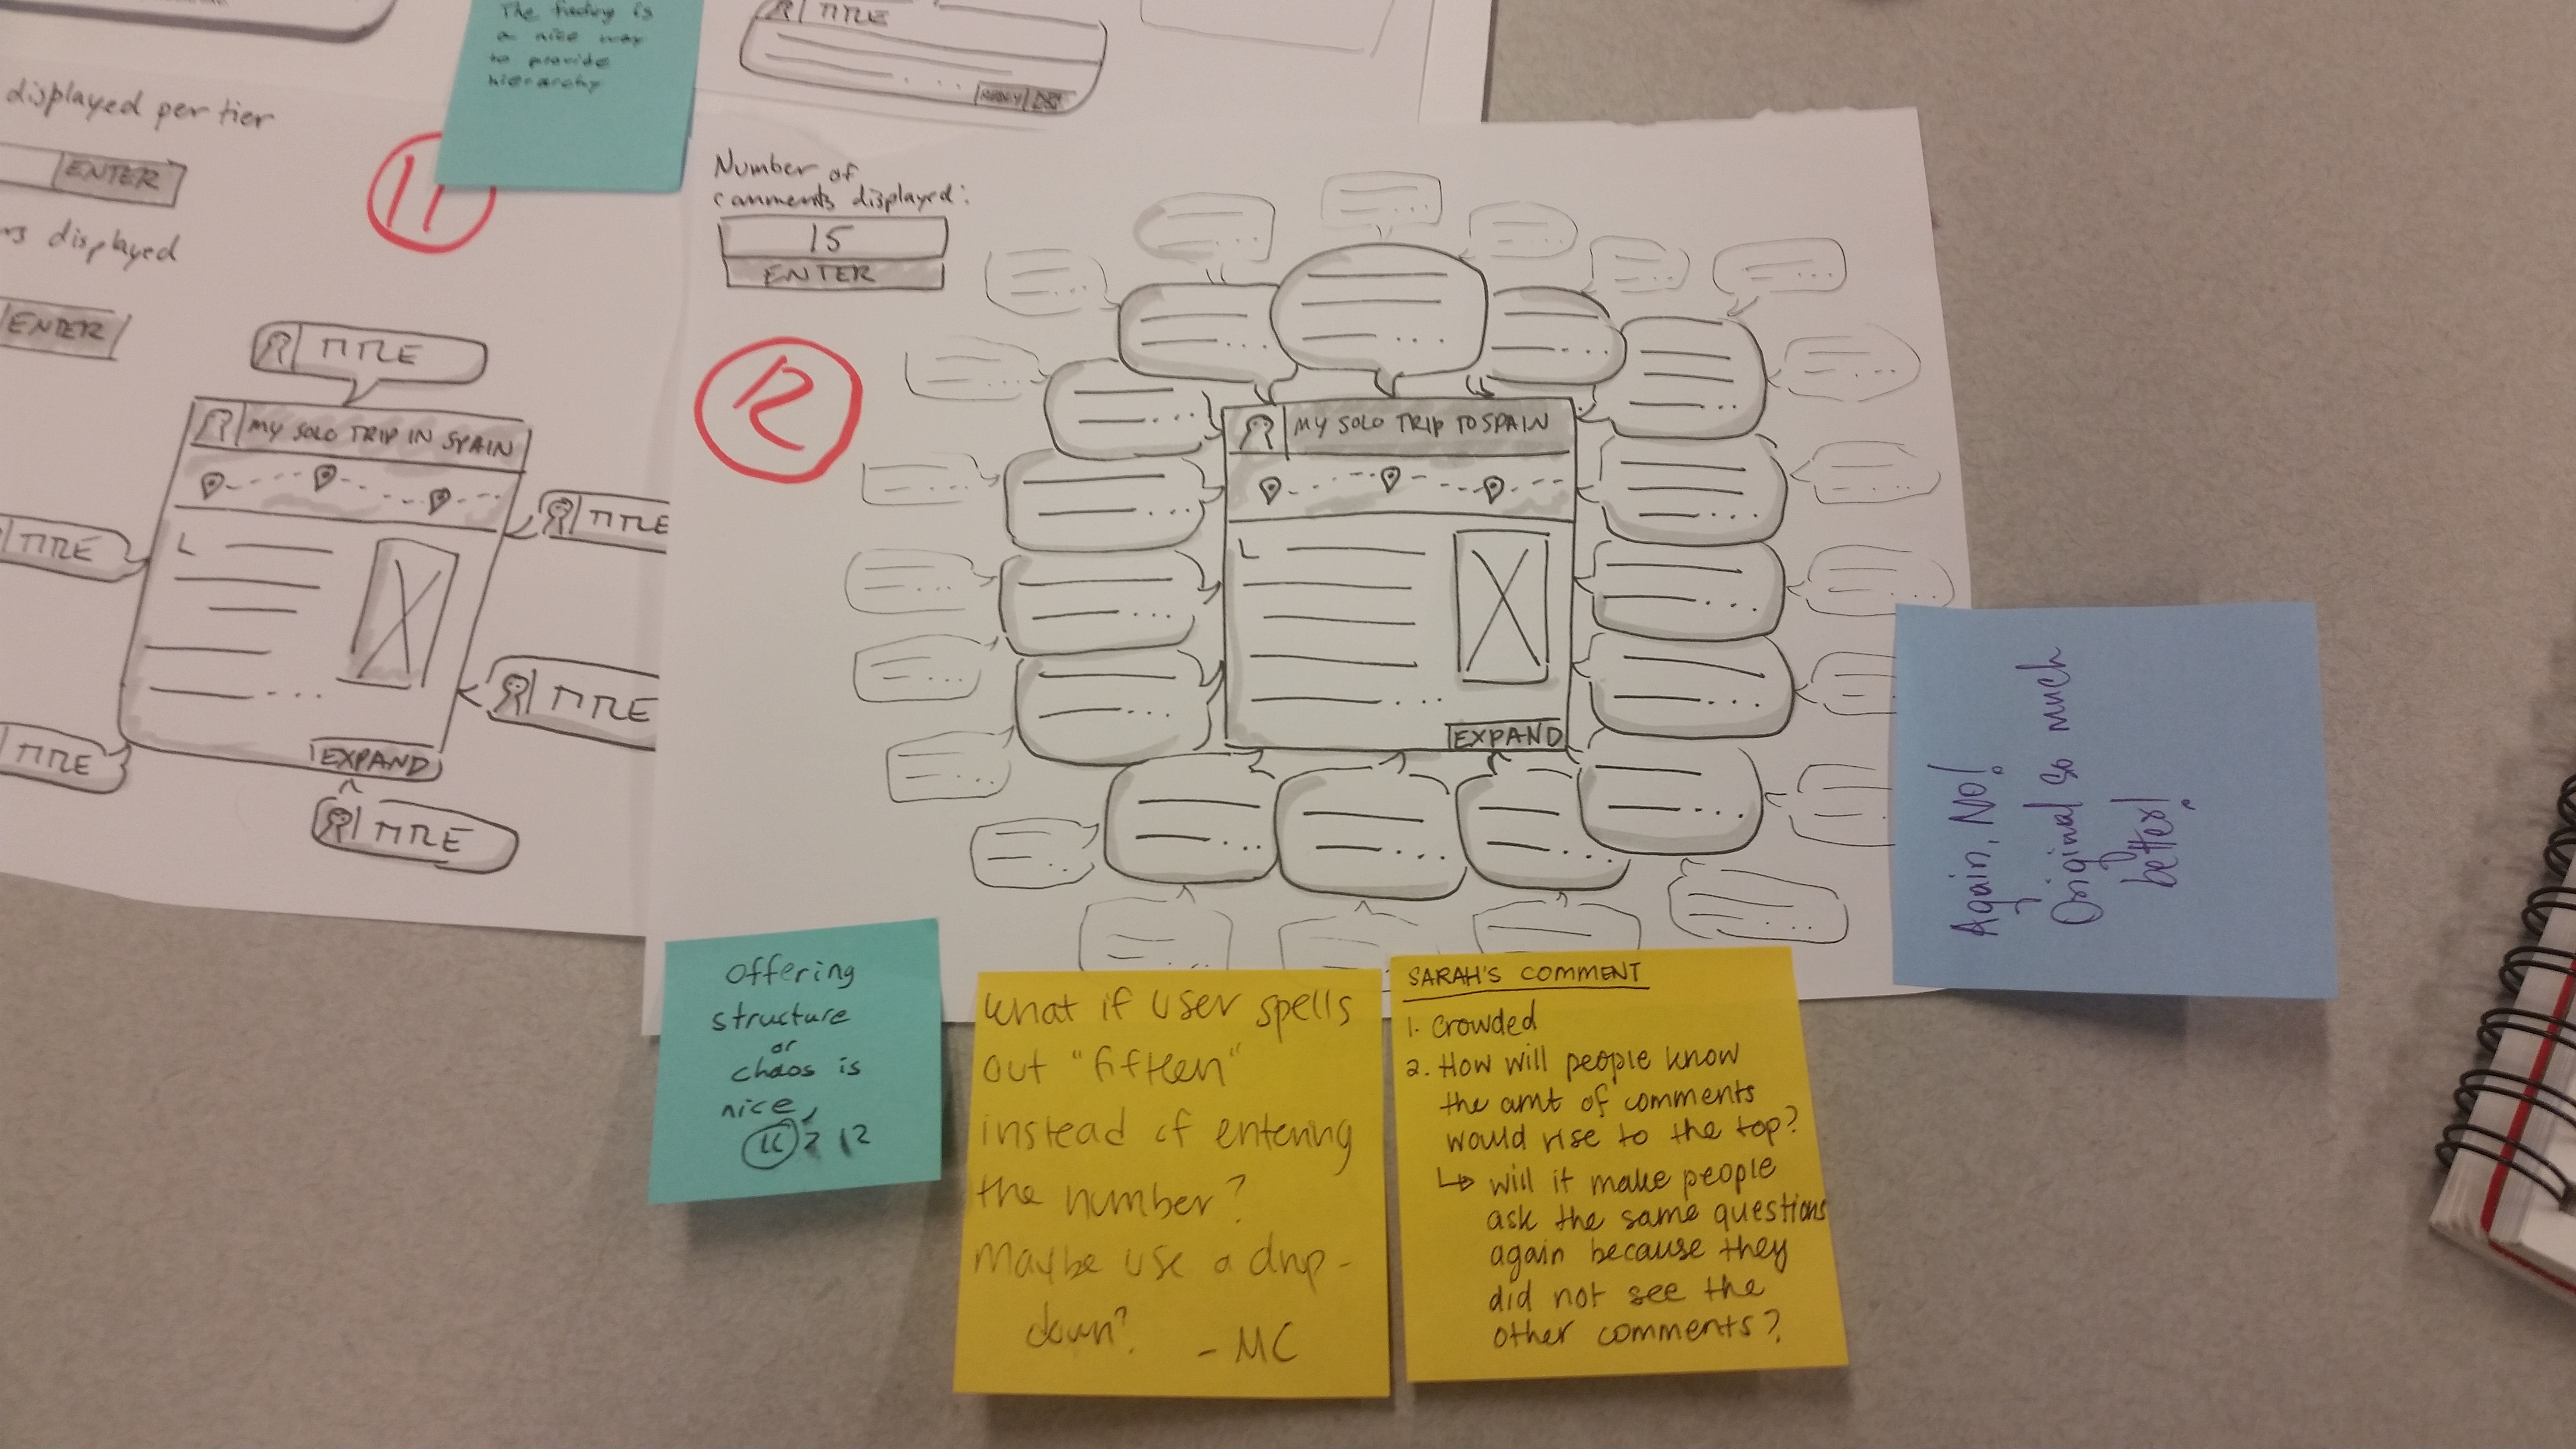 The fading is
a nice way
to provide
hierarchy
TITLE
REPLY
displayed per tier
ENTER
11
displayed
ENTER
TITLE
MY SOLO TRIP IN SPAIN
TITLE
TITLE
L
TITLE
TITLE
EXPAND
TITLE
Number of
comments displayed:
15
ENTER
12
MY SOLO TRIP TO SPAIN
L
EXPAND
Again, No!
Original so much
better!
Offering
structure
or
chaos is
nice,
12
What if user spells
out "fifteen"
instead of entering
the number?
Maybe use a drop-
down?
- MC
SARAH'S COMMENT
1. Crowded
2. How will people know
the amt of comments
would rise to the top?
↳ will it make people
ask the same questions
again because they
did not see the
other comments?